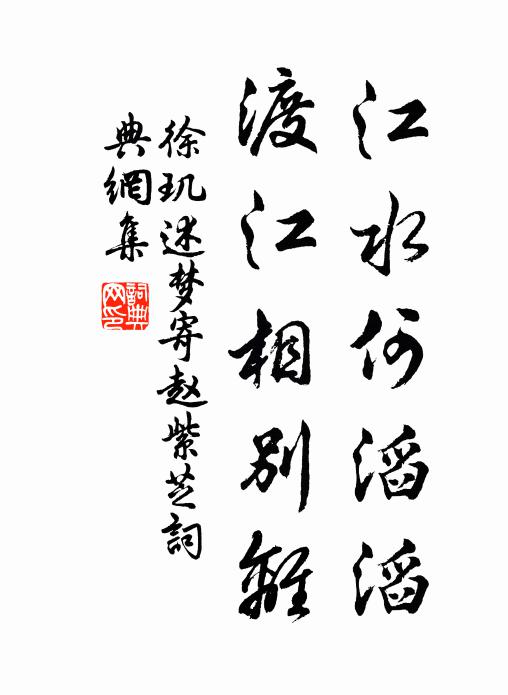 江水何滔滔
渡江相别離
徐玑述梦寄赵紫芝詞
典網集
詞典网印